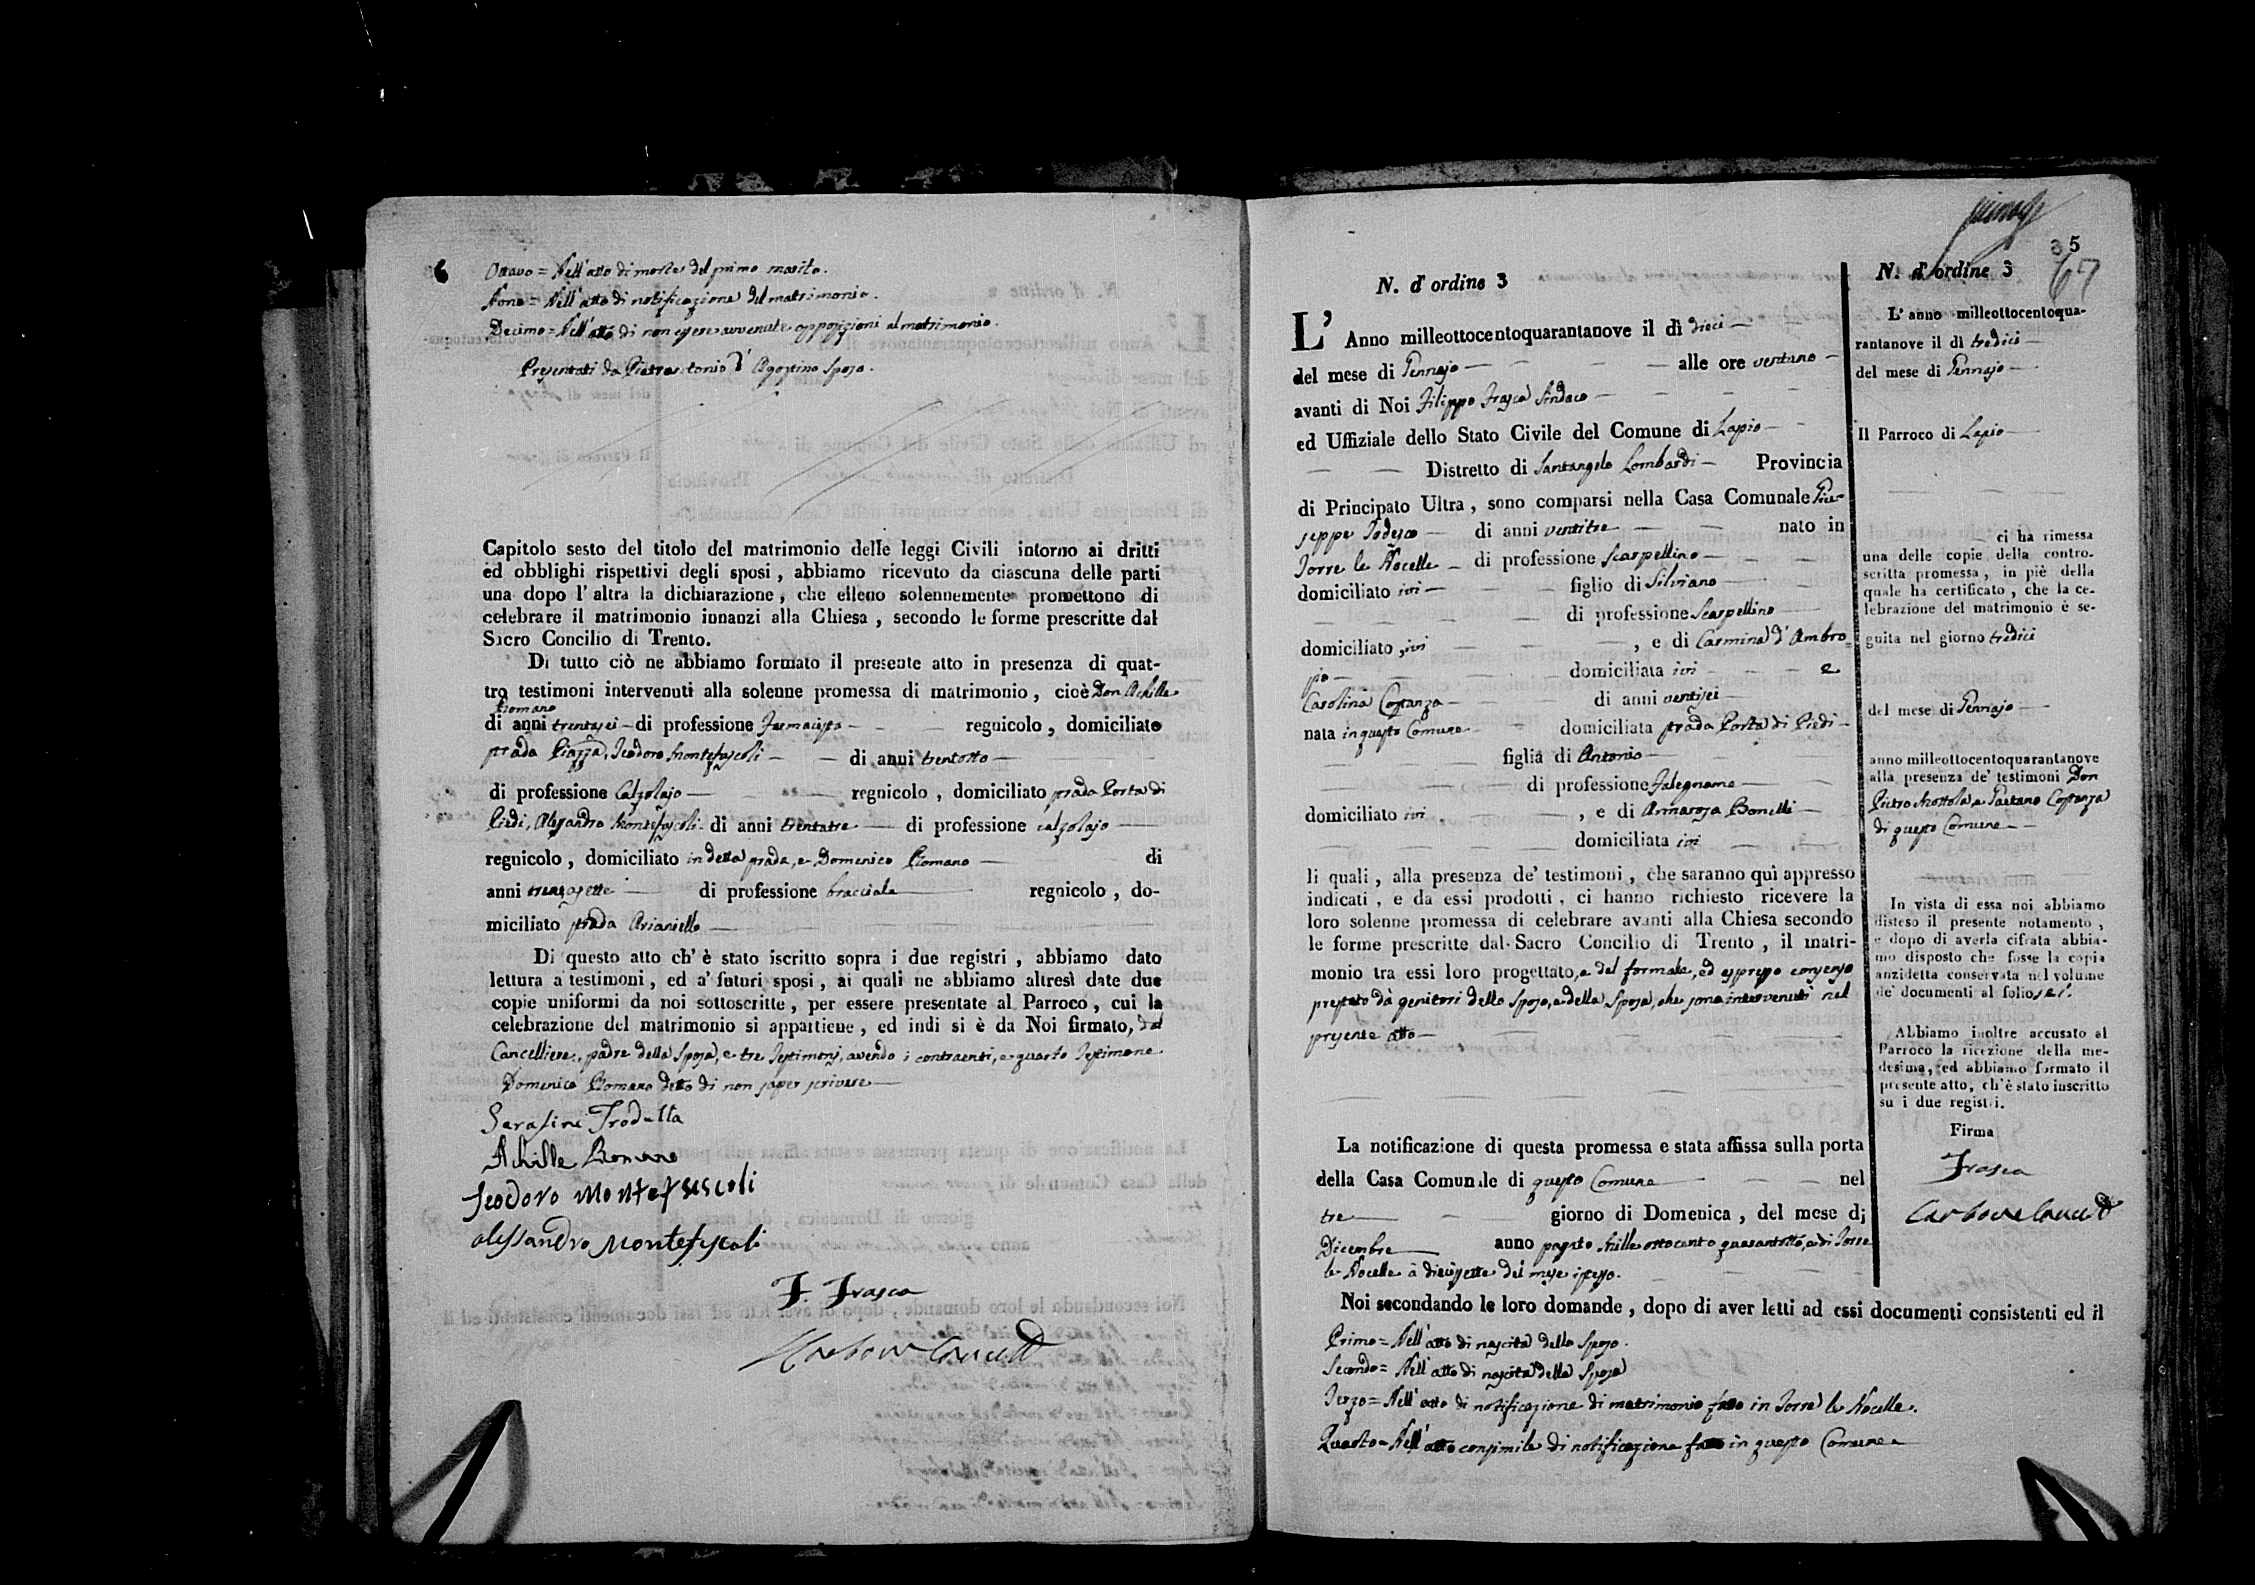 6
Ottavo = Nell'atto di morte del primo marito.
Nono = Nell'atto di notificazione del matrimonio.
Decimo = Nell'atto di non essere avvenute opposizioni al matrimonio.
Presentati da Pietrantonio d'Agostino sposo.
Capitolo sesto del titolo del matrimonio delle leggi Civili intorno ai dritti
ed obblighi rispettivi degli sposi, abbiamo ricevuto da ciascuna delle parti
una dopo l'altra la dichiarazione, che elleno solennemente promettono di
celebrare il matrimonio innanzi alla Chiesa, secondo le forme prescritte dal
Sacro Concilio di Trento.
Di tutto ciò ne abbiamo formato il presente atto in presenza di quat-
tro testimoni intervenuti alla solenne promessa di matrimonio, cioè Don Achille
Romano
di anni trentasei di professione Farmacista regnicolo, domiciliato
strada Piazza, Teodoro Montefuscoli di anni trentotto
di professione Calzolajo regnicolo, domiciliato strada Porta di
Piedi, Alessandro Montefuscoli di anni trentatre di professione calzolajo
regnicolo, domiciliato in detta strada, e Domenico Romano di
anni trentasette di professione bracciale regnicolo, do-
miciliato strada Arianiello
Di questo atto ch'è stato iscritto sopra i due registri, abbiamo dato
lettura a' testimoni, ed a' futuri sposi, ai quali ne abbiamo altresì date due
copie uniformi da noi sottoscritte, per essere presentate al Parroco, cui la
celebrazione del matrimonio si appartiene, ed indi si è da Noi firmato, dal
Cancelliere, padre della sposa, e tre testimonj, avendo i contraenti, e quarto testimone
Domenico Romano detto di non saper scrivere
Achille Romano
Teodoro Montefuscoli
Alessandro Montefuscoli
F. Frasca
35
67
N. d'ordine 3
L'Anno milleottocentoquarantanove il dì dieci
del mese di Gennajo alle ore ventuno
avanti di Noi Filippo Frasca Sindaco
ed Uffiziale dello Stato Civile del Comune di Lapio
Distretto di Santangelo Lombardi Provincia
di Principato Ultra, sono comparsi nella Casa Comunale Giu-
seppe Todesco di anni ventitre nato in
Torre le Nocelle di professione Scarpellino
domiciliato ivi figlio di Silviano
di professione Scarpellino
domiciliato, ivi, e di Carmina d'Ambro=
sio domiciliata ivi e
Carolina Costanza di anni ventisei
nata in questo Comune domiciliata strada Porta di Piedi
figlia di Antonio
di professione Falegname
domiciliato ivi, e di Annarosa Bonelli
domiciliata ivi
li quali, alla presenza de' testimoni, che saranno quì appresso
indicati, e da essi prodotti, ci hanno richiesto ricevere la
loro solenne promessa di celebrare avanti alla Chiesa secondo
le forme prescritte dal Sacro Concilio di Trento, il matri-
monio tra essi loro progettato, e del formale, ed espresso consenso
prestato dà genitori dello sposo, e della sposa, che sono intervenuti nel
presente atto
La notificazione di questa promessa e stata affissa sulla porta
della Casa Comunale di questo Comune nel
tre giorno di Domenica, del mese di
Dicembre anno passato Mille ottocento quarantotto, e di Torre
le Nocelle à diecisette del mese istesso.
Noi secondando le loro domande, dopo di aver letti ad essi documenti consistenti ed il
Primo = Nell'atto di nascita dello sposo.
Secondo = Nell'atto di nascita della sposa
Terzo = Nell'atto di notificazione di matrimonio fatto in Torre le Nocelle.
Quarto = Nell'atto consimile di notificazione fatto in questo Comune
N. d'ordine 3
L'anno milleottocentoqua-
rantanove il dì tredici
del mese di Gennajo
Il Parroco di Lapio
ci ha rimessa
una delle copie della contro-
scritta promessa, in piè della
quale ha certificato, che la ce-
lebrazione del matrimonio è se-
guita nel giorno tredici
del mese di Gennajo
anno milleottocentoquarantanove
alla presenza de' testimoni Don
Pietro Mottola e Gaetano Costanza
di questo Comune
In vista di essa noi abbiamo
disteso il presente notamento,
e dopo di averla cifrata abbia-
mo disposto che fosse la copia
anzidetta conservata nel volume
de' documenti al folio
Abbiamo inoltre accusato al
Parroco la ricezione della me-
desima, ed abbiamo formato il
presente atto, ch'è stato inscritto
su i due registri.
Firma
Frasca